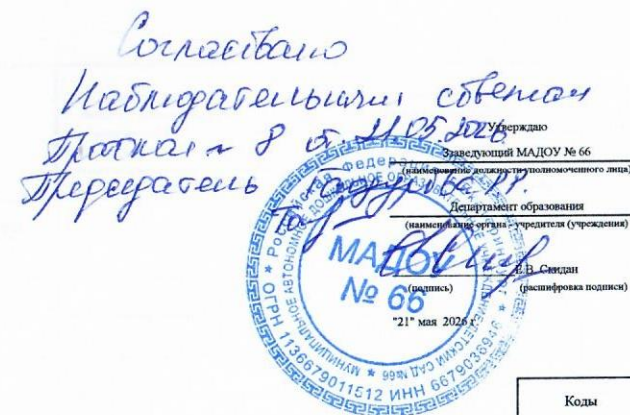 Согласовано
Наблюдательным советом
Протокол № 8 от 21.05.2026
Председатель
Утверждаю
Заведующий МАДОУ № 66
(наименование должности уполномоченного лица)
Департамент образования
(наименование органа - учредителя (учреждения)
Е.В. Скидан
(подпись) (расшифровка подписи)
"21" мая 2026 г.
МАДОУ
№ 66
ОГРН 1136679011512 ИНН 6679036946
МУНИЦИПАЛЬНОЕ АВТОНОМНОЕ ДОШКОЛЬНОЕ
ДЕТСКИЙ САД №66
Коды